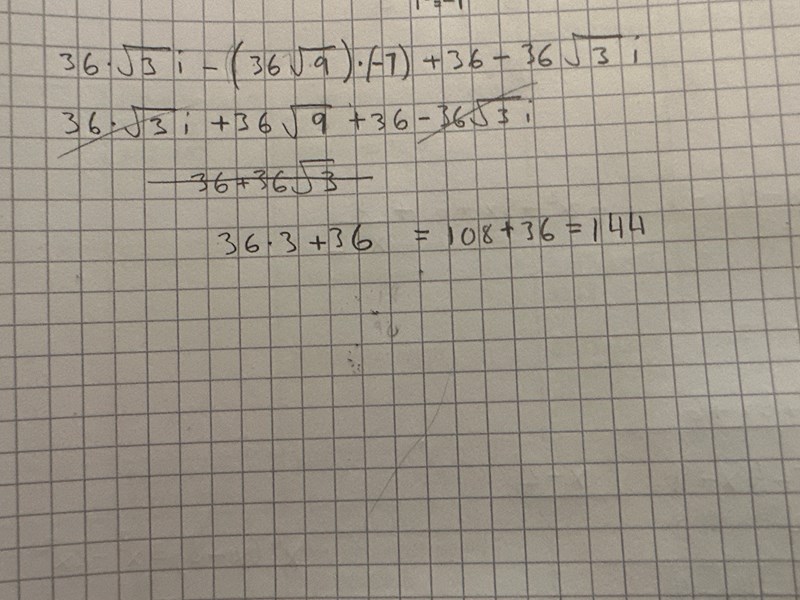 36·√3 i − (36√9)·(-1) + 36 − 36√3 i
36·√3 i + 36√9 + 36 − 36√3 i
36+36√3
36·3 + 36 = 108 + 36 = 144